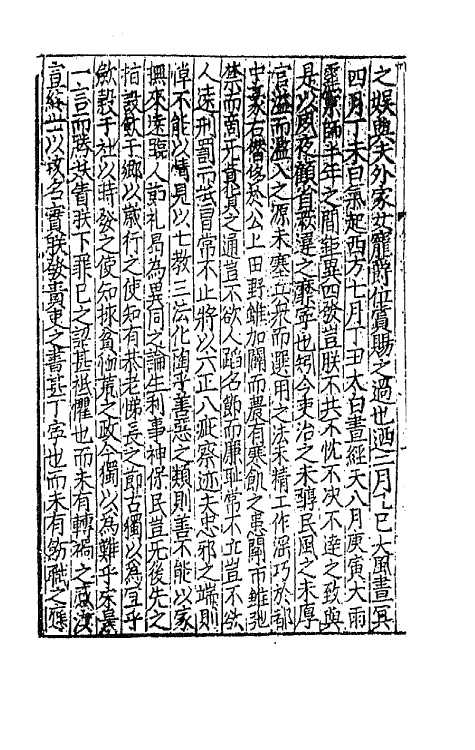 之娱與夫外家女寵爵位賞賜之過也迺三月乙巳大風晝冥
四月丁未白氣起西方七月丁丑太白晝經天八月庚寅大雨
震京師半年之間能異四發豈朕不共不忱不决不逹之致與
是以夙夜顧省茲瘼之靡寧也矧今吏治之未醇民風之未厚
官溢而濫入之源未塞兵衆而選用之法未精工作淫巧於都
中豪右僭侈於公上田野雖加闢而農有寒飢之患關市雖弛
禁而商無貨之通豈不欲人蹈名節而廉耻常不立豈不欲
人遠刑罰而冒常不止將以六正八疵察迹夫忠邪之端則
悼不能以情見以七教三法化陶乎善惡之類則善不能以家
興來遠臨人節礼昂為異同之論生利事神保民豈无後先之
指設飲于鄉以歲行之使知有恭老悌長之節古獨以為宜乎
歛榖于社以時發之使知捄貧恤荒之政今獨以為難乎宋景
一言而勝妖眚朕下罪已之詔甚祗懼也而未有轉禍之感漢
宣綜世以核名實朕發責吏之書甚丁寧也而未有効職之